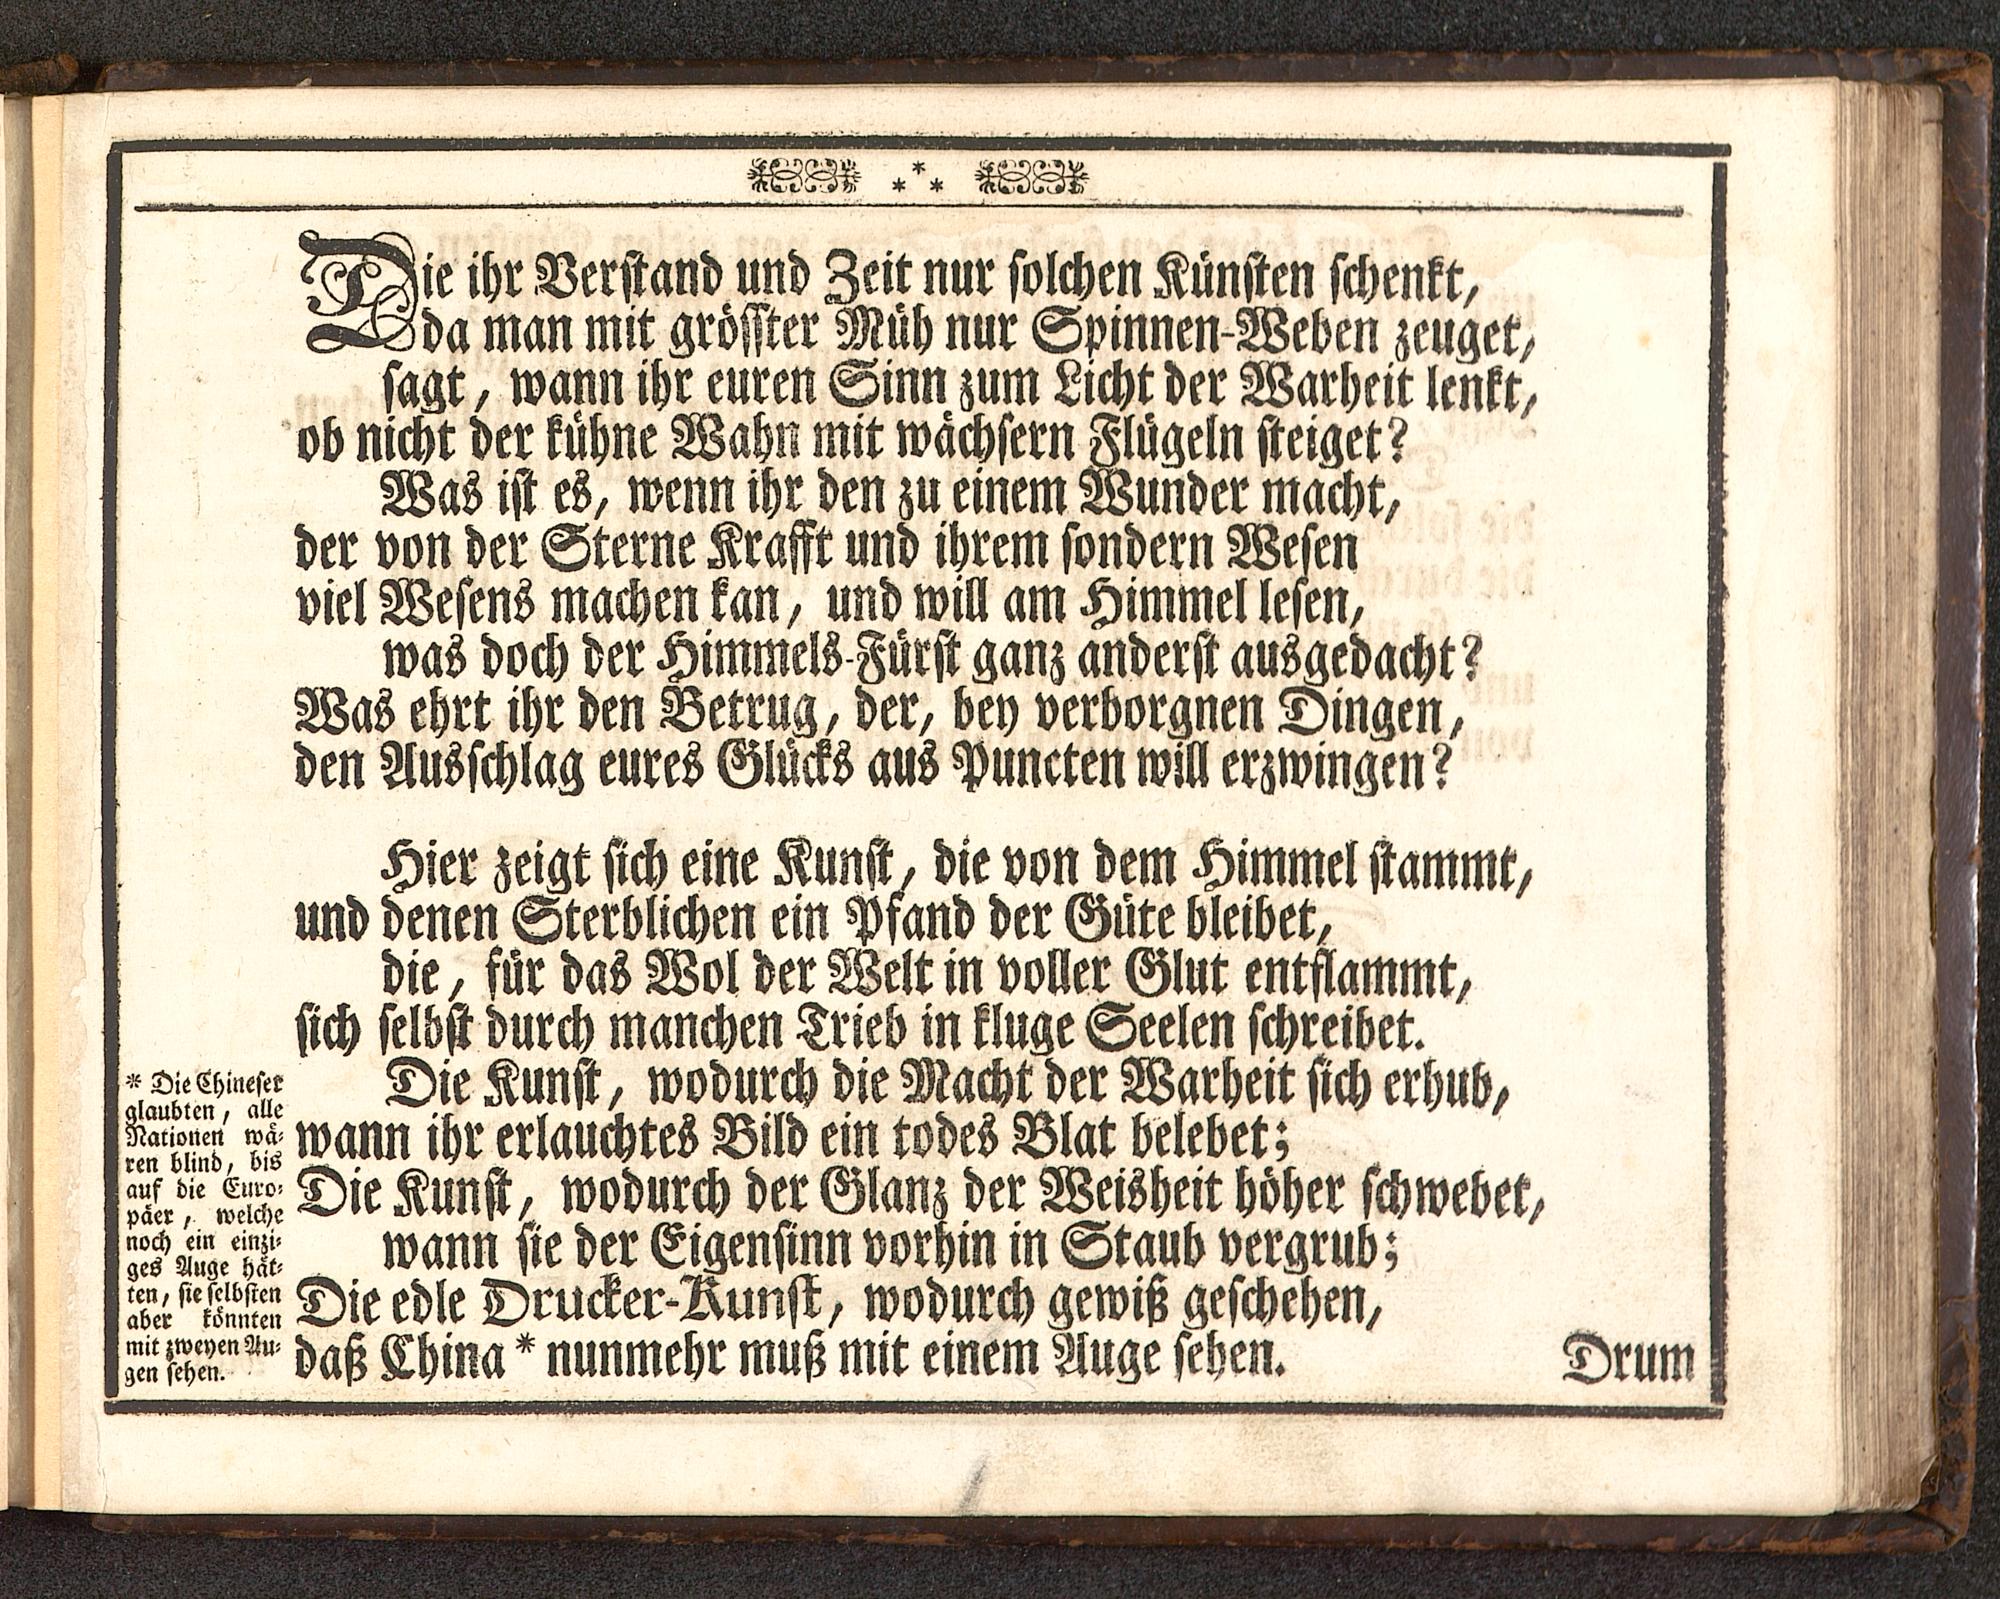 Die ihr Verstand und Zeit nur solchen Künsten schenkt,
da man mit gröster Müh nur Spinnen-Weben zeuget,
sagt, wann ihr euren Sinn zum Licht der Warheit lenkt,
ob nicht der kühne Wahn mit wächsern Flügeln steiget?
Was ist es, wenn ihr den zu einem Wunder macht,
der von der Sterne Krafft und ihrem sondern Wesen
viel Wesens machen kan, und will am Himmel lesen,
was doch der Himmels-Fürst ganz anderst ausgedacht?
Was ehrt ihr den Betrug, der, bey verborgnen Dingen,
den Ausschlag eures Glücks aus Puncten will erzwingen?
Hier zeigt sich eine Kunst, die von dem Himmel stammt,
und denen Sterblichen ein Pfand der Güte bleibet,
die, für das Wol der Welt in voller Glut entflammt,
sich selbst durch manchen Trieb in kluge Seelen schreibet.
Die Kunst, wodurch die Macht der Warheit sich erhub,
wann ihr erlauchtes Bild ein todes Blat belebet;
Die Kunst, wodurch der Glanz der Weisheit höher schwebet,
wann sie der Eigensinn vorhin in Staub vergrub;
Die edle Drucker-Kunst, wodurch gewiß geschehen,
daß China * nunmehr muß mit einem Auge sehen.
* Die Chineser
glaubten, alle
Nationen wä-
ren blind, bis
auf die Euro-
päer, welche
noch ein einzi-
ges Auge hät-
ten, sie selbsten
aber könnten
mit zweyen Au-
gen sehen.
Drum